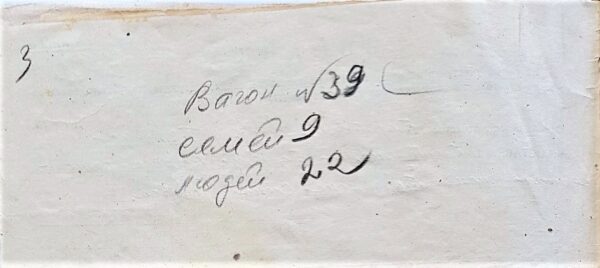 3
Вагон №39
семей 9
людей 22